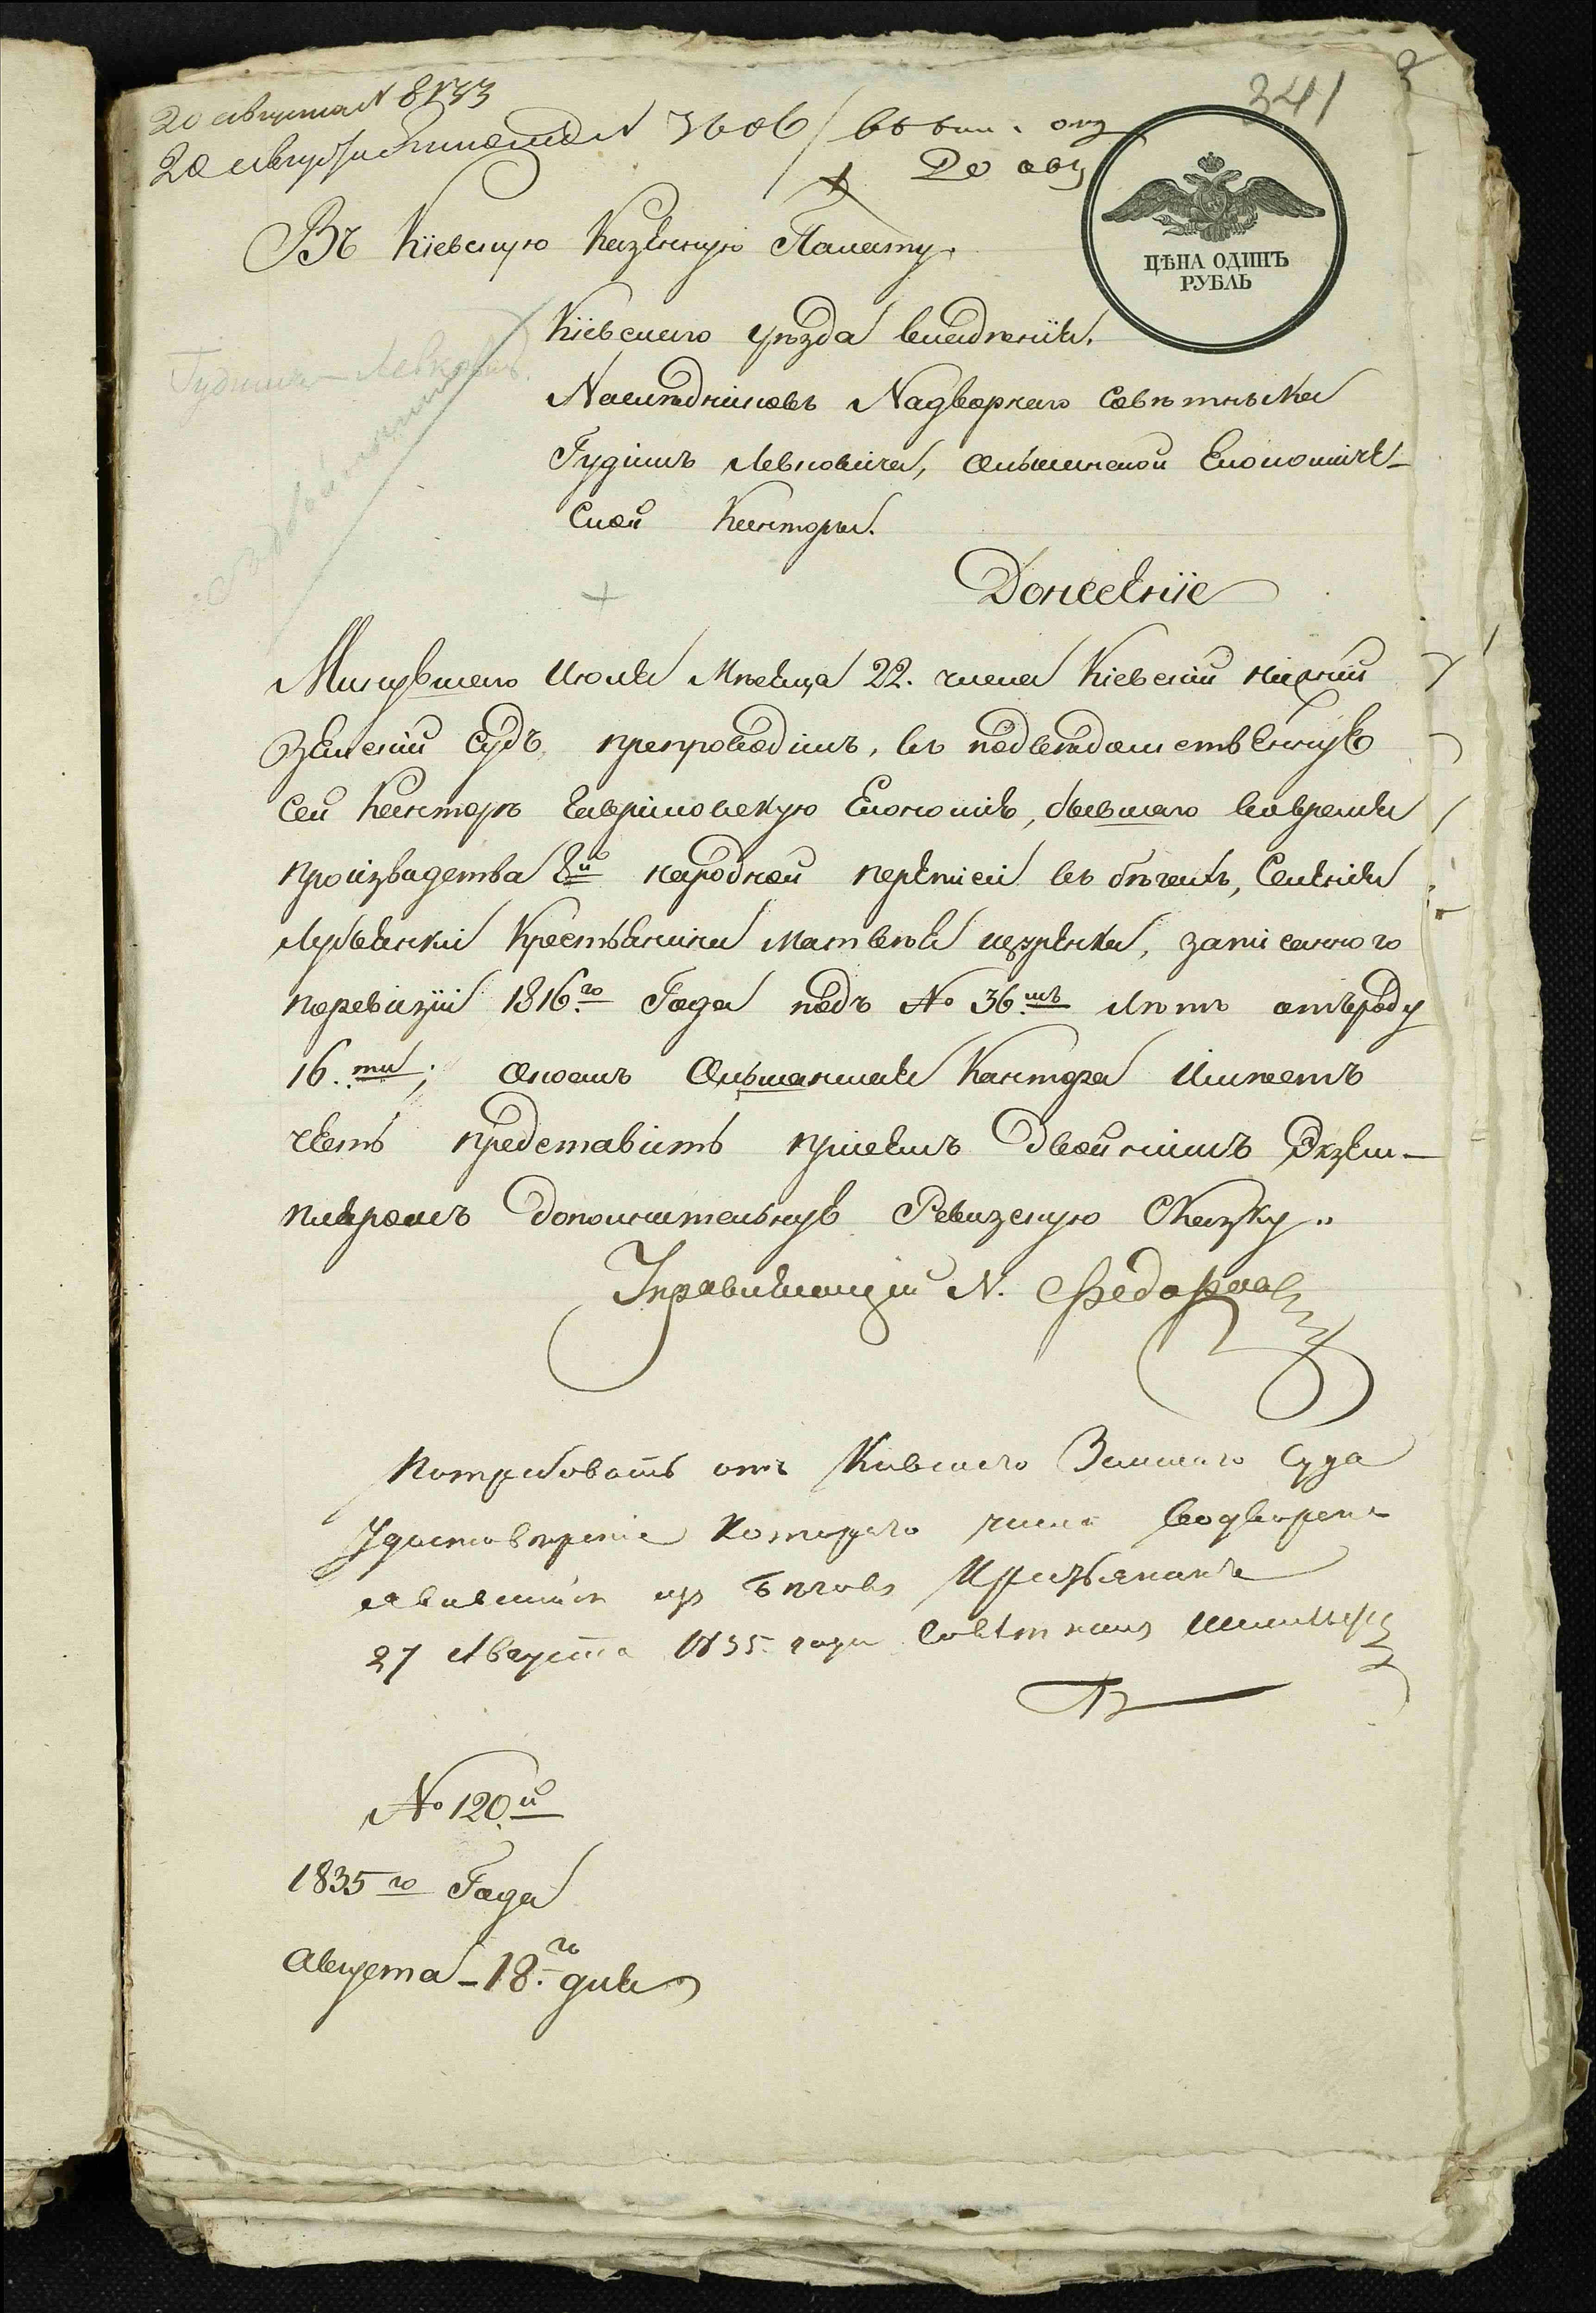 20 августа N 8133
20 августа N 3606
20 авг
341
ЦѢНА ОДИНЪ
РУБЛЬ
Въ Кіевскую Казенную Палату.
Кіевскаго уѣзда владѣнія,
Гудимъ-Левковичъ
Наслѣдниковъ Надворнаго Совѣтника
Гудимъ Левковича, Ольшанской Економиче-
ской Канторы.
Донесеніе
Минувшаго Июля Мѣсяца 22. числа Кіевскій нижній
Земскій Судъ, препроводилъ, въ подвѣдомственную
сей Канторѣ Гавріловскую Економію, бывшаго вовремя
произвадства 8й народной переписи въ бѣгахъ, Селенія
Крестьянина Матвѣя, записанного
поревізіи 1816го Года подъ № 36мъ лѣтъ отъроду
16.ти; Ольшанская Кантора имѣетъ
честь представить присемъ двойнимъ Экзем-
пляромъ дополнительную Ревизскую Сказку.
Управляющій N. Федоров
Потребовать отъ Киевскаго Земскаго Суда
Удостовѣреніе Котораго числа водворенъ
явившійся из бѣговъ Крестьянинъ
27 Августа 1835 года Совѣтникъ
№ 120.й
1835го Года
Августа - 18.го дня